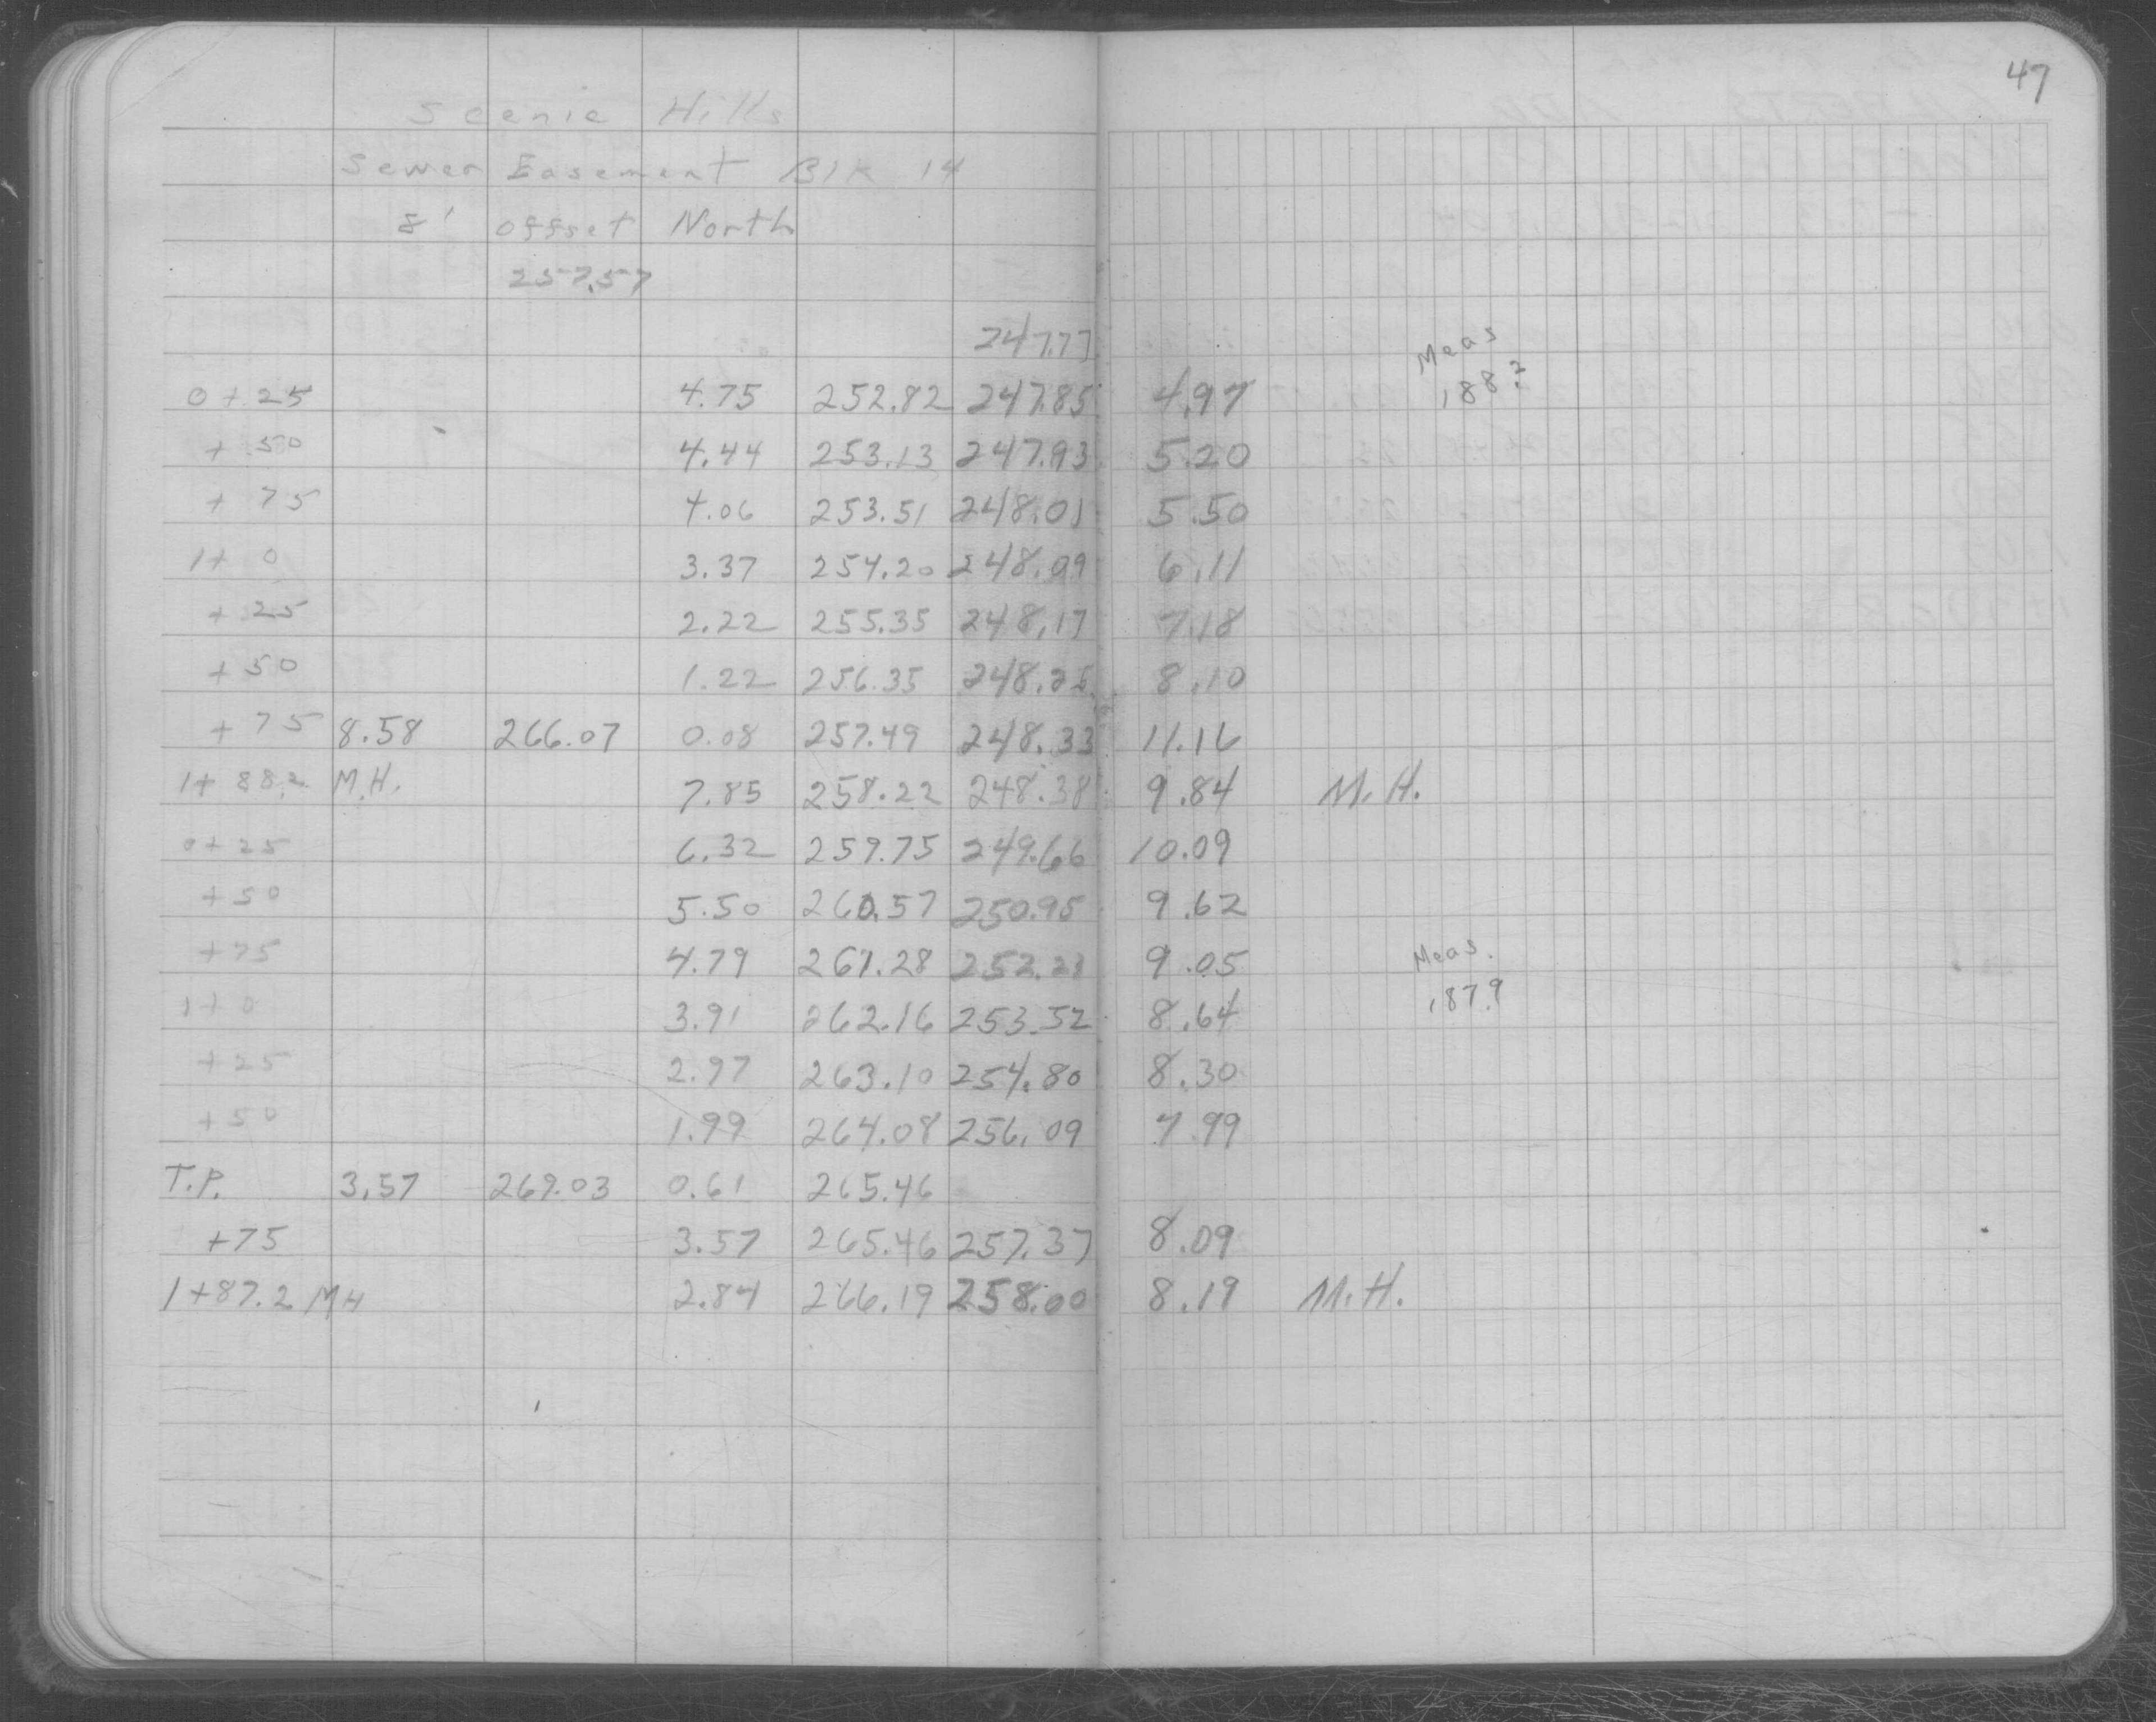 47
Scenic Hills
Sewer Easement Blk 14
8' offset North
257.57
247.77
Meas
0+25 4.75 252.82 247.85 4.97 188.2
+50 4.44 253.13 247.93 5.20
+75 4.06 253.51 248.01 5.50
1+0 3.37 254.20 248.09 6.11
+25 2.22 255.35 248.17 7.18
+50 1.22 256.35 248.25 8.10
+75 8.58 266.07 0.08 257.49 248.33 11.16
1+88.2 M.H. 7.85 258.22 248.38 9.84 M.H.
0+25 6.32 259.75 249.66 10.09
+50 5.50 260.57 250.95 9.62
+75 4.79 261.28 252.23 9.05 Meas.
1+0 3.91 262.16 253.52 8.64 187.9
+25 2.97 263.10 254.80 8.30
+50 1.99 264.08 256.09 7.99
T.P. 3.57 269.03 0.61 265.46
+75 3.57 265.46 257.37 8.09
1+87.2 MH 2.84 266.19 258.00 8.19 M.H.